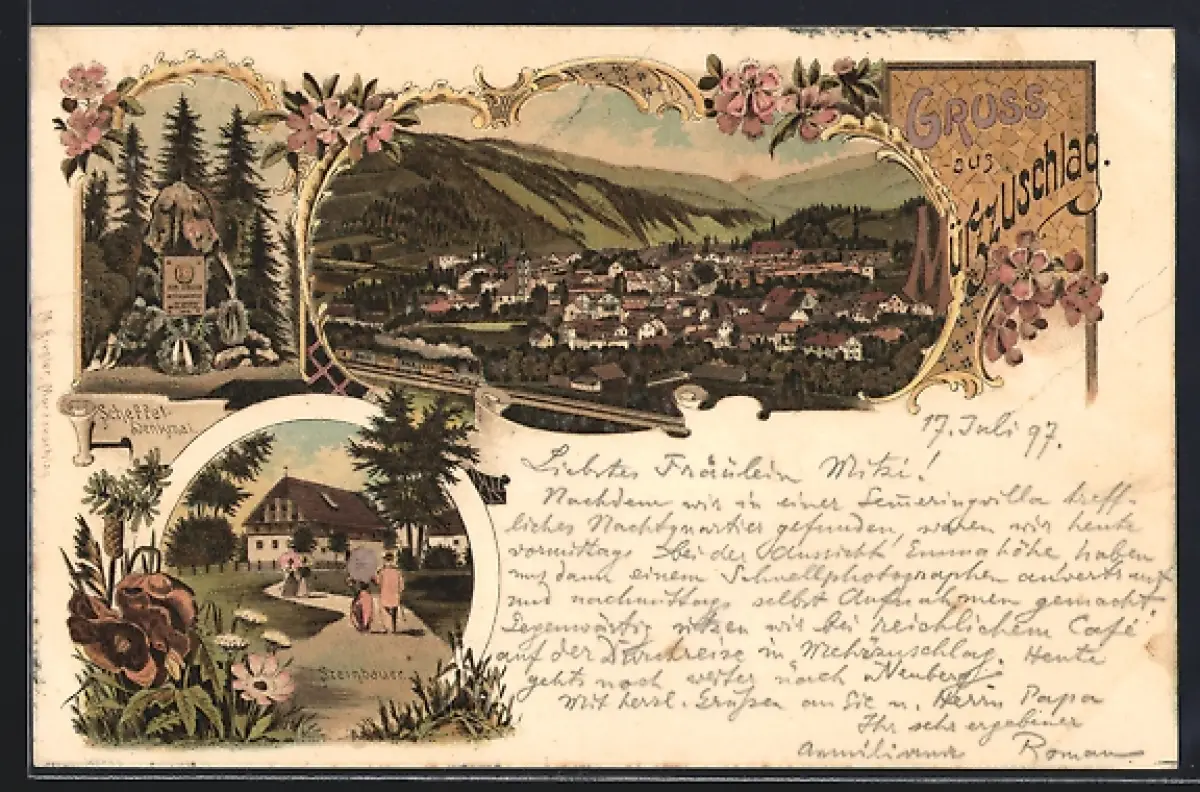 GRUSS
aus
Mürzzuschlag.
Scheffel-
Denkmal.
Steinbauer.
17. Juli 97.
Liebstes Fräulein Mitzi!
Nachdem wir in einer Semeringvilla treff-
liches Nachtquartier gefunden, waren wir heute
vormittags bei der Aussicht Emmahöhe, haben
uns dann einem Schnellphotographen
und nachmittags selbst Aufnahmen gemacht.
Gegenwärtig sitzen wir bei reichlichem Café
auf der Durchreise in Mehrzuschlag. Heute
gehts noch weiter nach Neuberg.
Mit herzl. Grüßen an Sie u. Herrn Papa
Ihr sehr ergebener
Roman